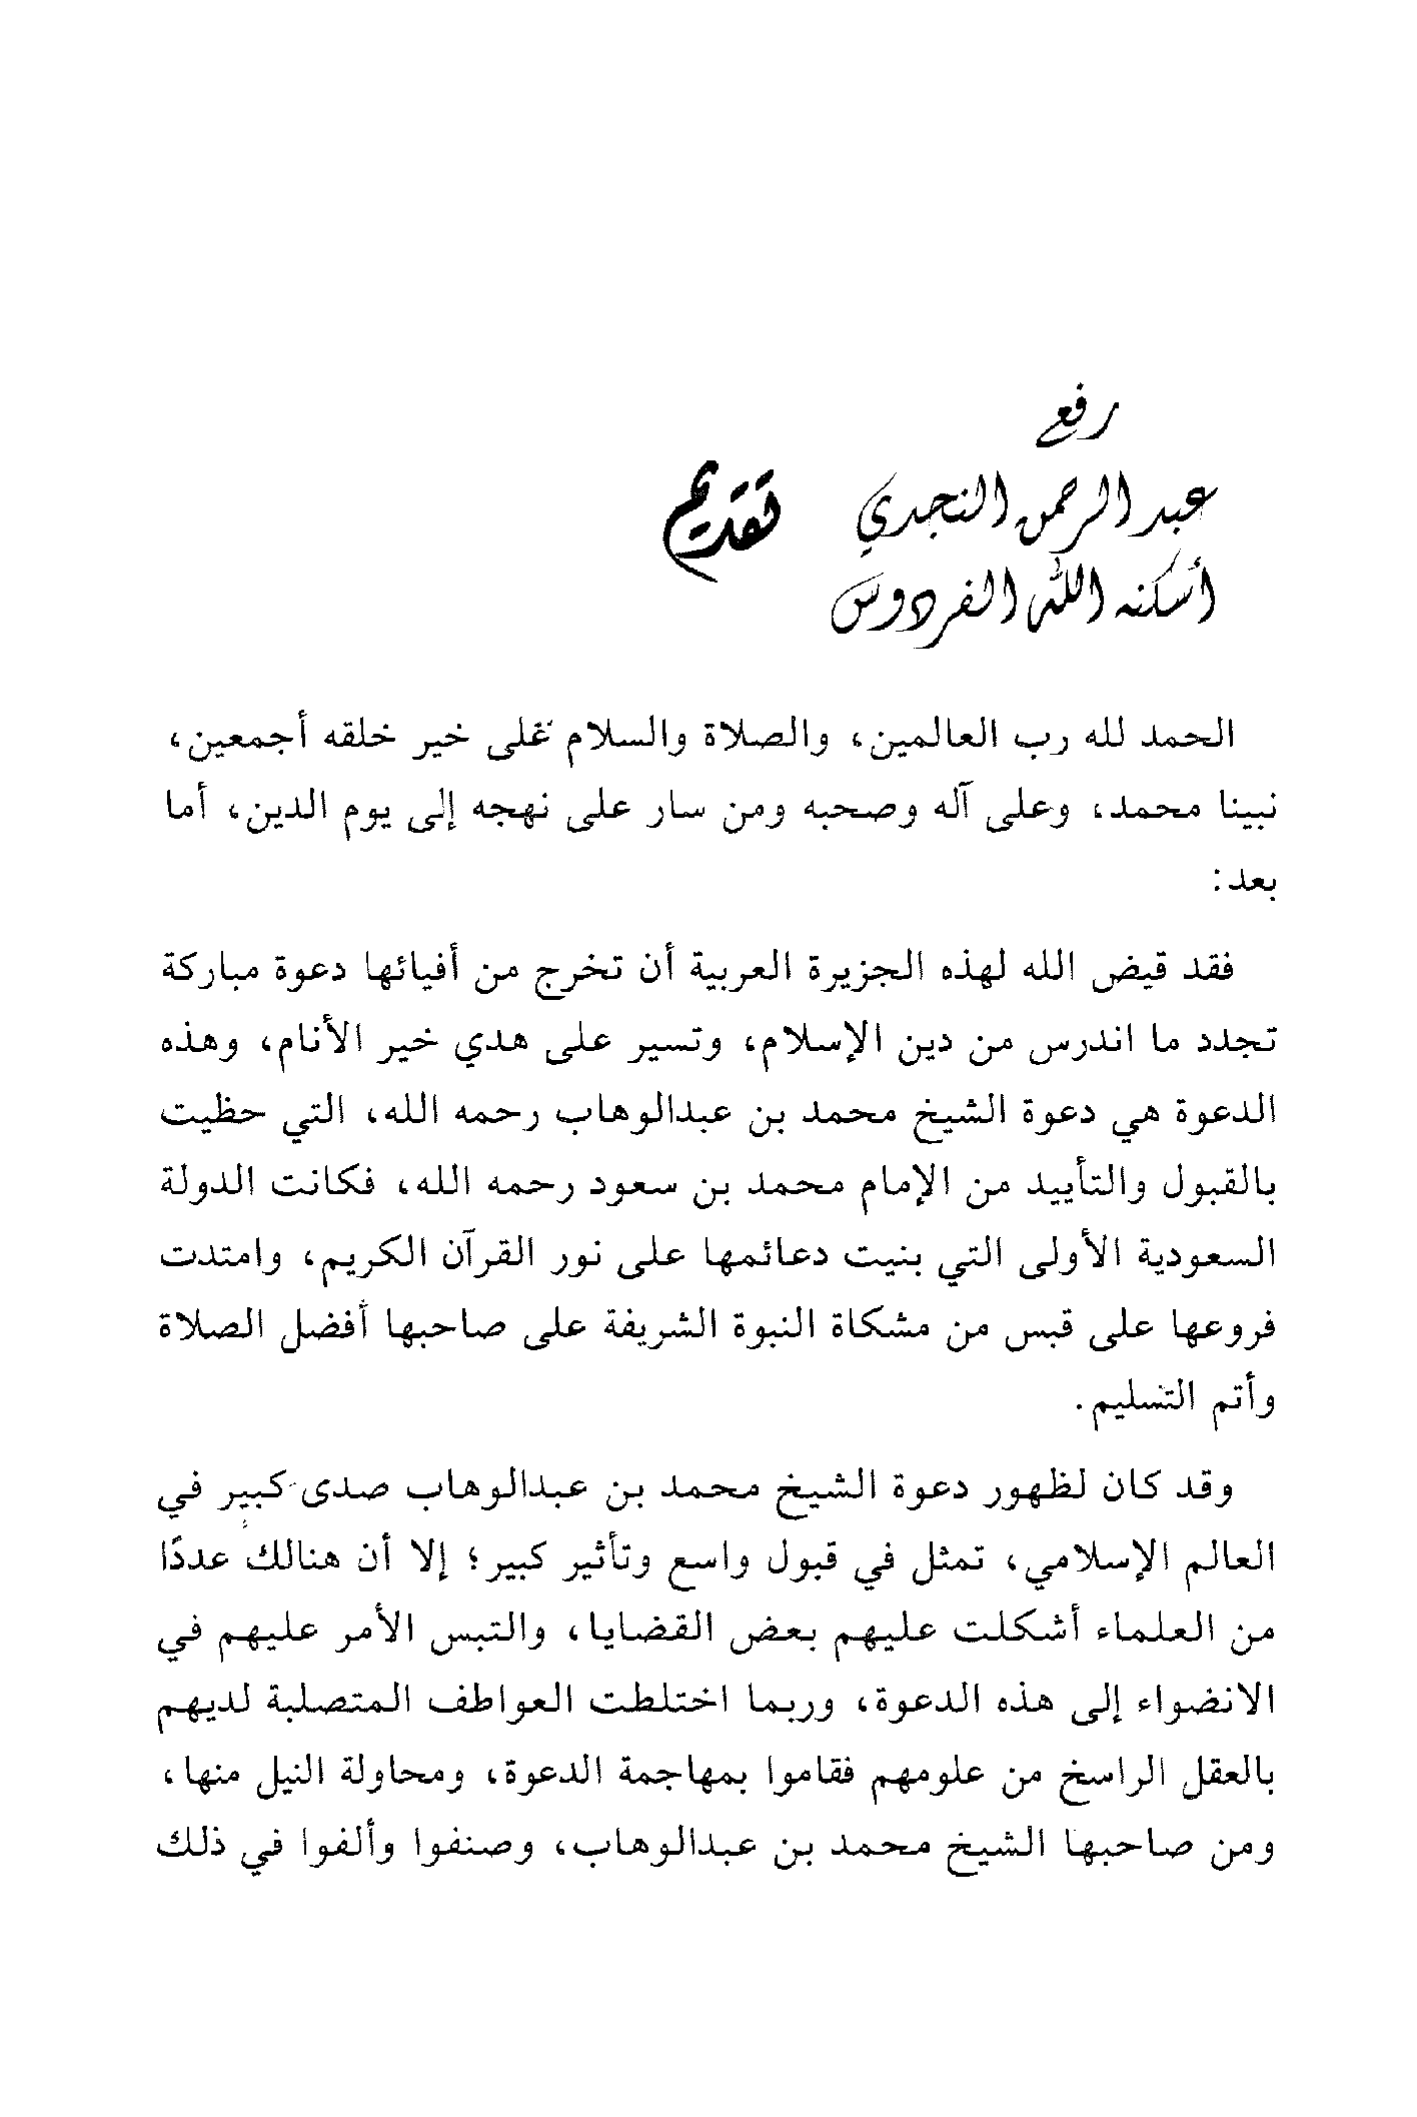 رفع
عبد الرحمن النجدي
أسكنه الله الفردوس
تقديم
الحمد لله رب العالمين، والصلاة والسلام على خير خلقه أجمعين،
نبينا محمد، وعلى آله وصحبه ومن سار على نهجه إلى يوم الدين، أما
بعد:
فقد قيض الله لهذه الجزيرة العربية أن تخرج من أفيائها دعوة مباركة
تجدد ما اندرس من دين الإسلام، وتسير على هدي خير الأنام، وهذه
الدعوة هي دعوة الشيخ محمد بن عبدالوهاب رحمه الله، التي حظيت
بالقبول والتأييد من الإمام محمد بن سعود رحمه الله، فكانت الدولة
السعودية الأولى التي بنيت دعائمها على نور القرآن الكريم، وامتدت
فروعها على قبس من مشكاة النبوة الشريفة على صاحبها أفضل الصلاة
وأتم التسليم.
وقد كان لظهور دعوة الشيخ محمد بن عبدالوهاب صدى كبير في
العالم الإسلامي، تمثل في قبول واسع وتأثير كبير؛ إلا أن هنالك عددًا
من العلماء أشكلت عليهم بعض القضايا، والتبس الأمر عليهم في
الانضواء إلى هذه الدعوة، وربما اختلطت العواطف المتصلبة لديهم
بالعقل الراسخ من علومهم فقاموا بمهاجمة الدعوة، ومحاولة النيل منها،
ومن صاحبها الشيخ محمد بن عبدالوهاب، وصنفوا وألفوا في ذلك